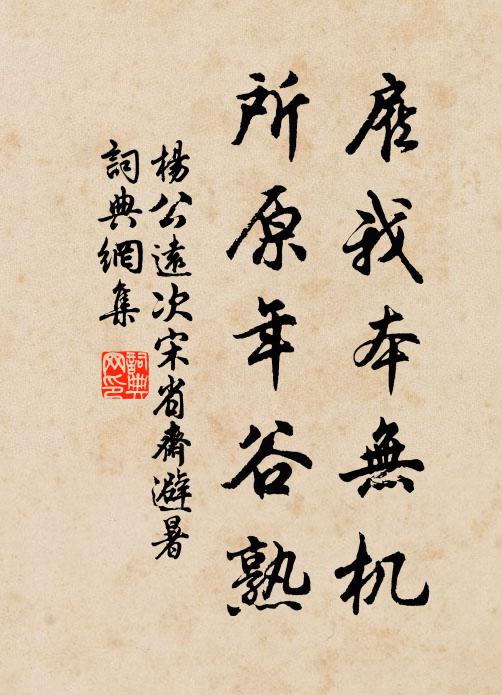 我本無机
所原年谷熟
楊公遠次宋省齋避暑
詞典網集
詞典
网印